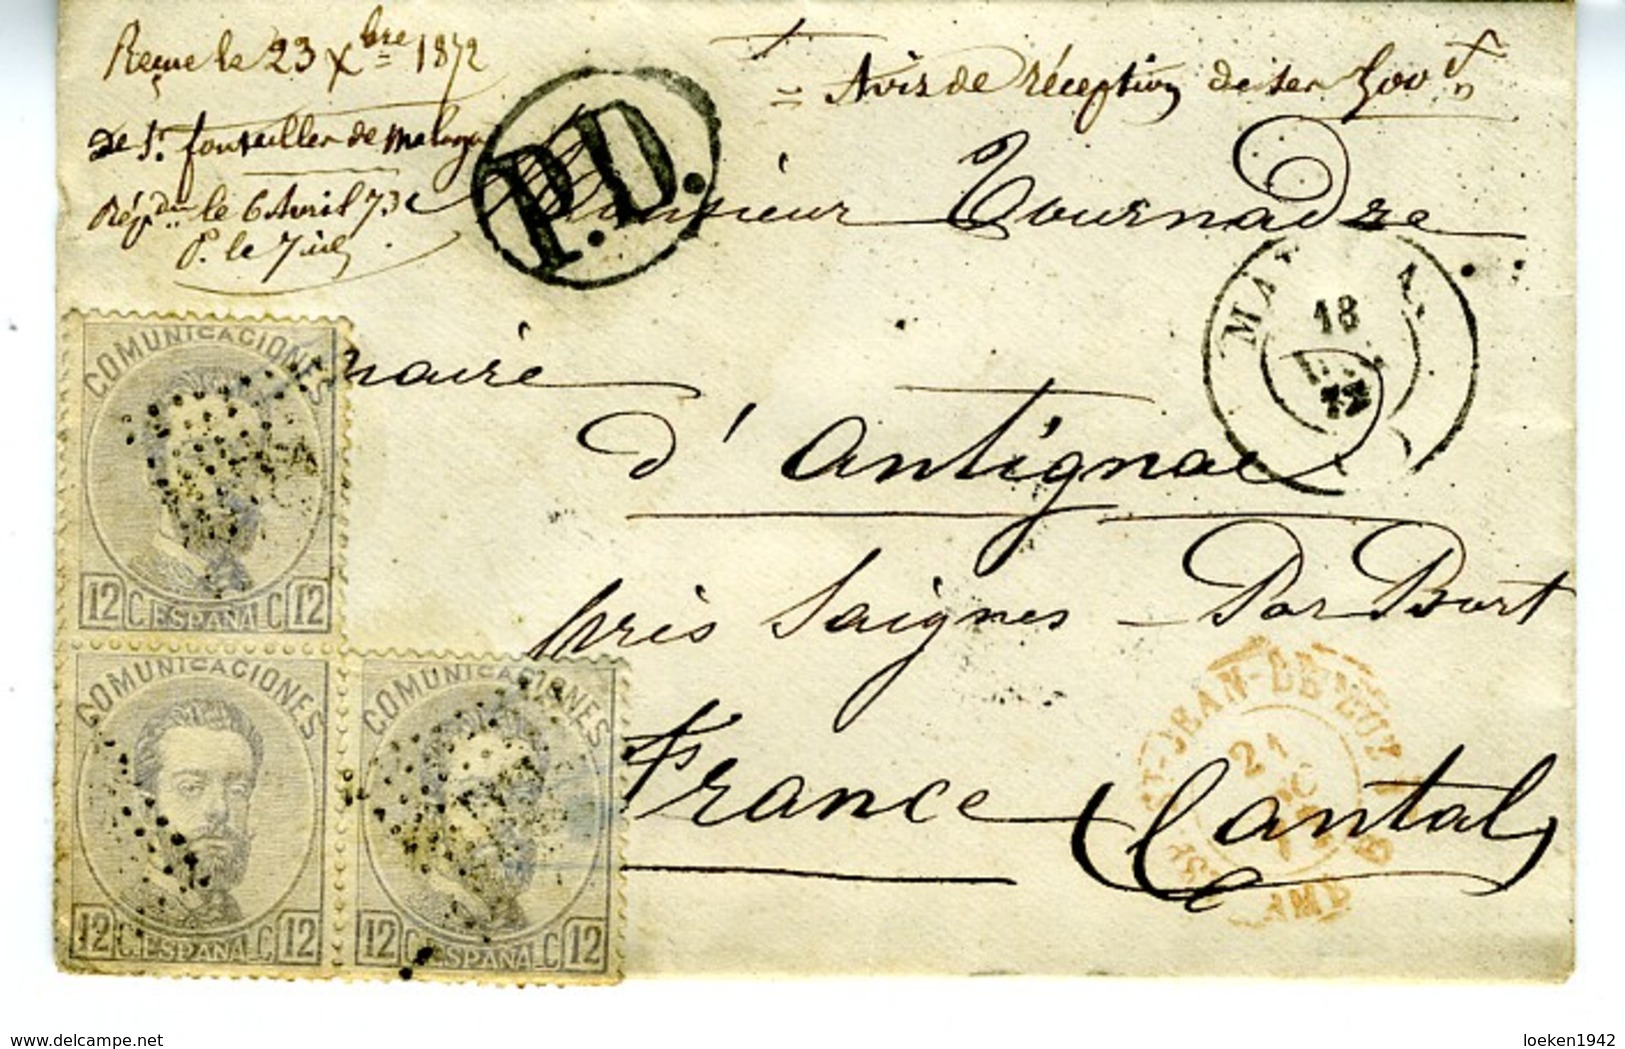 Reçue le 23 Xbre 1872
De Sr. fontailler de Malaga
Répdu le 6 Avril 73
P. le
= Avis de réception de ses
P.D.
Monsieur Tournadre
18
72
maire
d'Antignac
près Saignes - Par Bort
France (Cantal)
ST-JEAN-DE-LUZ
21
COMUNICACIONES
12 C. ESPANA C 12
COMUNICACIONES
12 C. ESPANA C 12
COMUNICACIONES
12 C. ESPANA C 12
www.delcampe.net
loeken1942